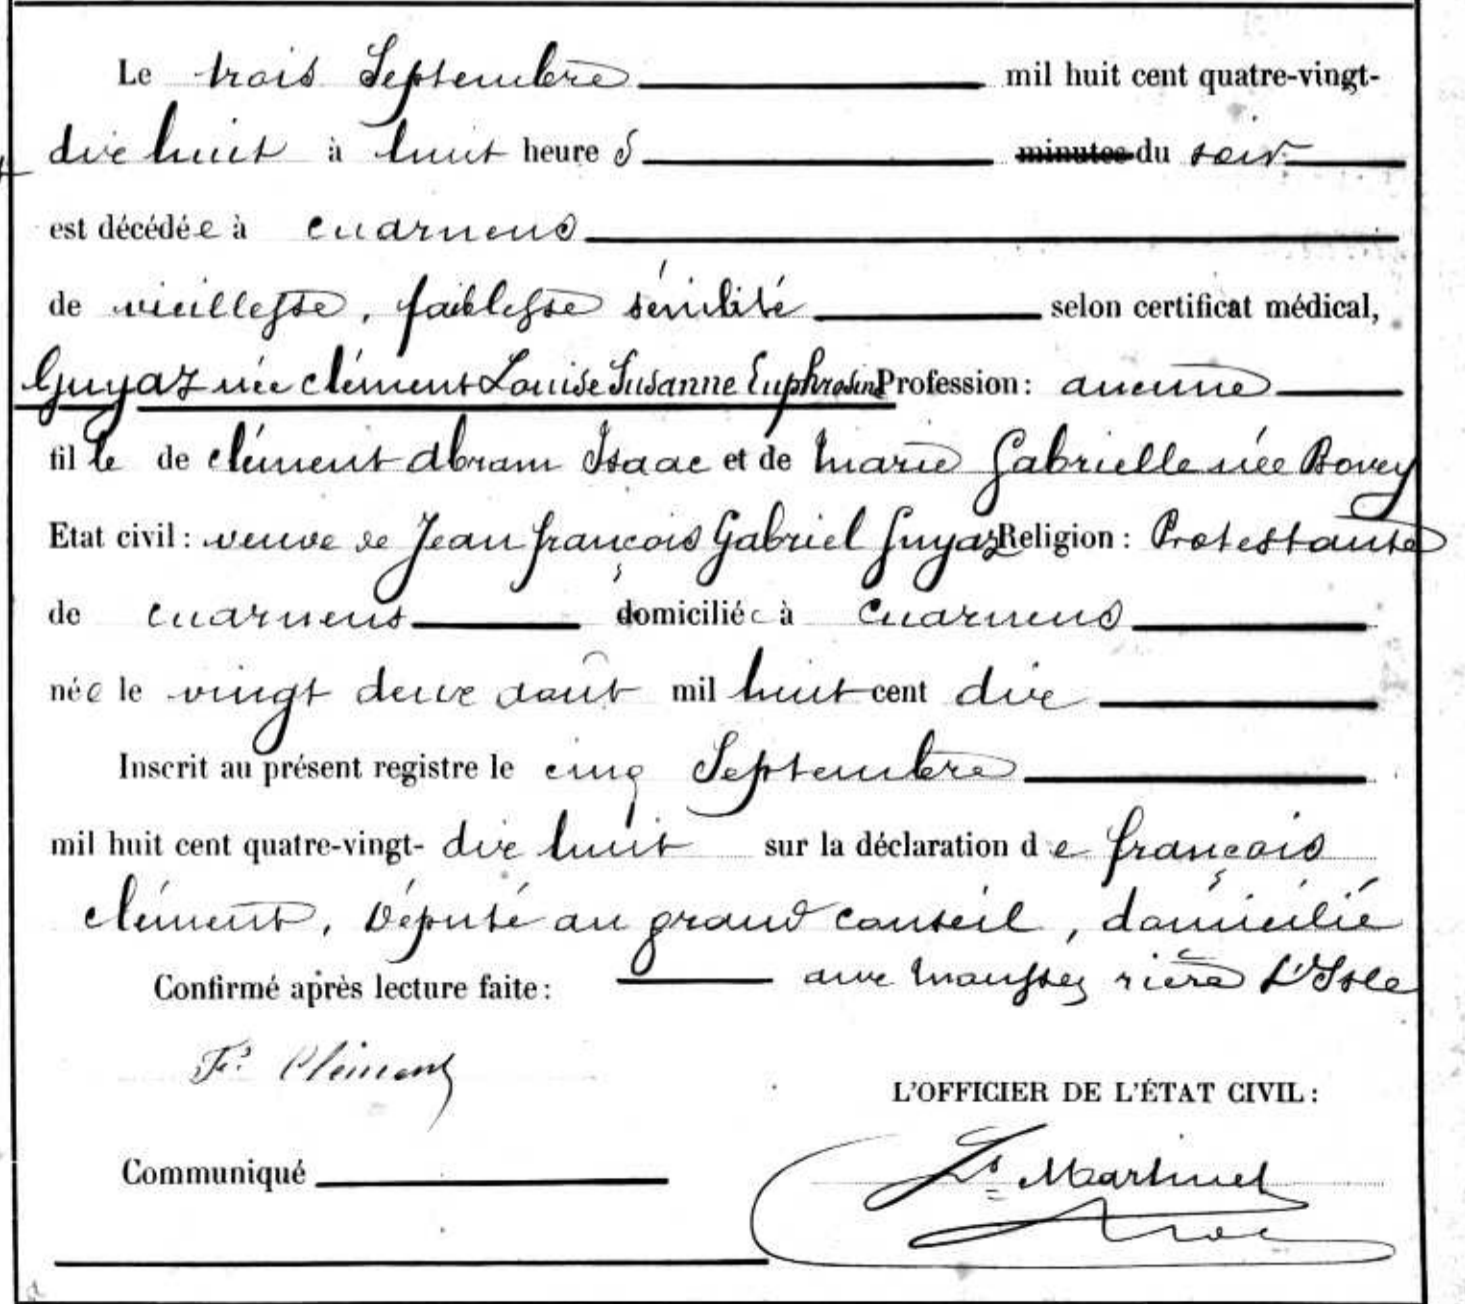 Le trois Septembre mil huit cent quatre-vingt-
dix huit à huit heures minutes du soir
est décédée à Cuarnens
de vieillesse, faiblesse sénilité selon certificat médical,
Guyaz née Clément Louise Susanne Euphrosine Profession : aucune
fille de Clément Abram Isaac et de Marie Gabrielle née Bovey
Etat civil : veuve de Jean François Gabriel Guyaz Religion : Protestante
de Cuarnens domiciliée à Cuarnens
née le vingt deux août mil huit cent dix
Inscrit au présent registre le cinq Septembre
mil huit cent quatre-vingt- dix huit sur la déclaration de François
Clément, Député au grand conseil, domicilié
Confirmé après lecture faite : aux Moussez rière L'Isle
Fs Clément
L'OFFICIER DE L'ÉTAT CIVIL :
Communiqué Ls Martinet